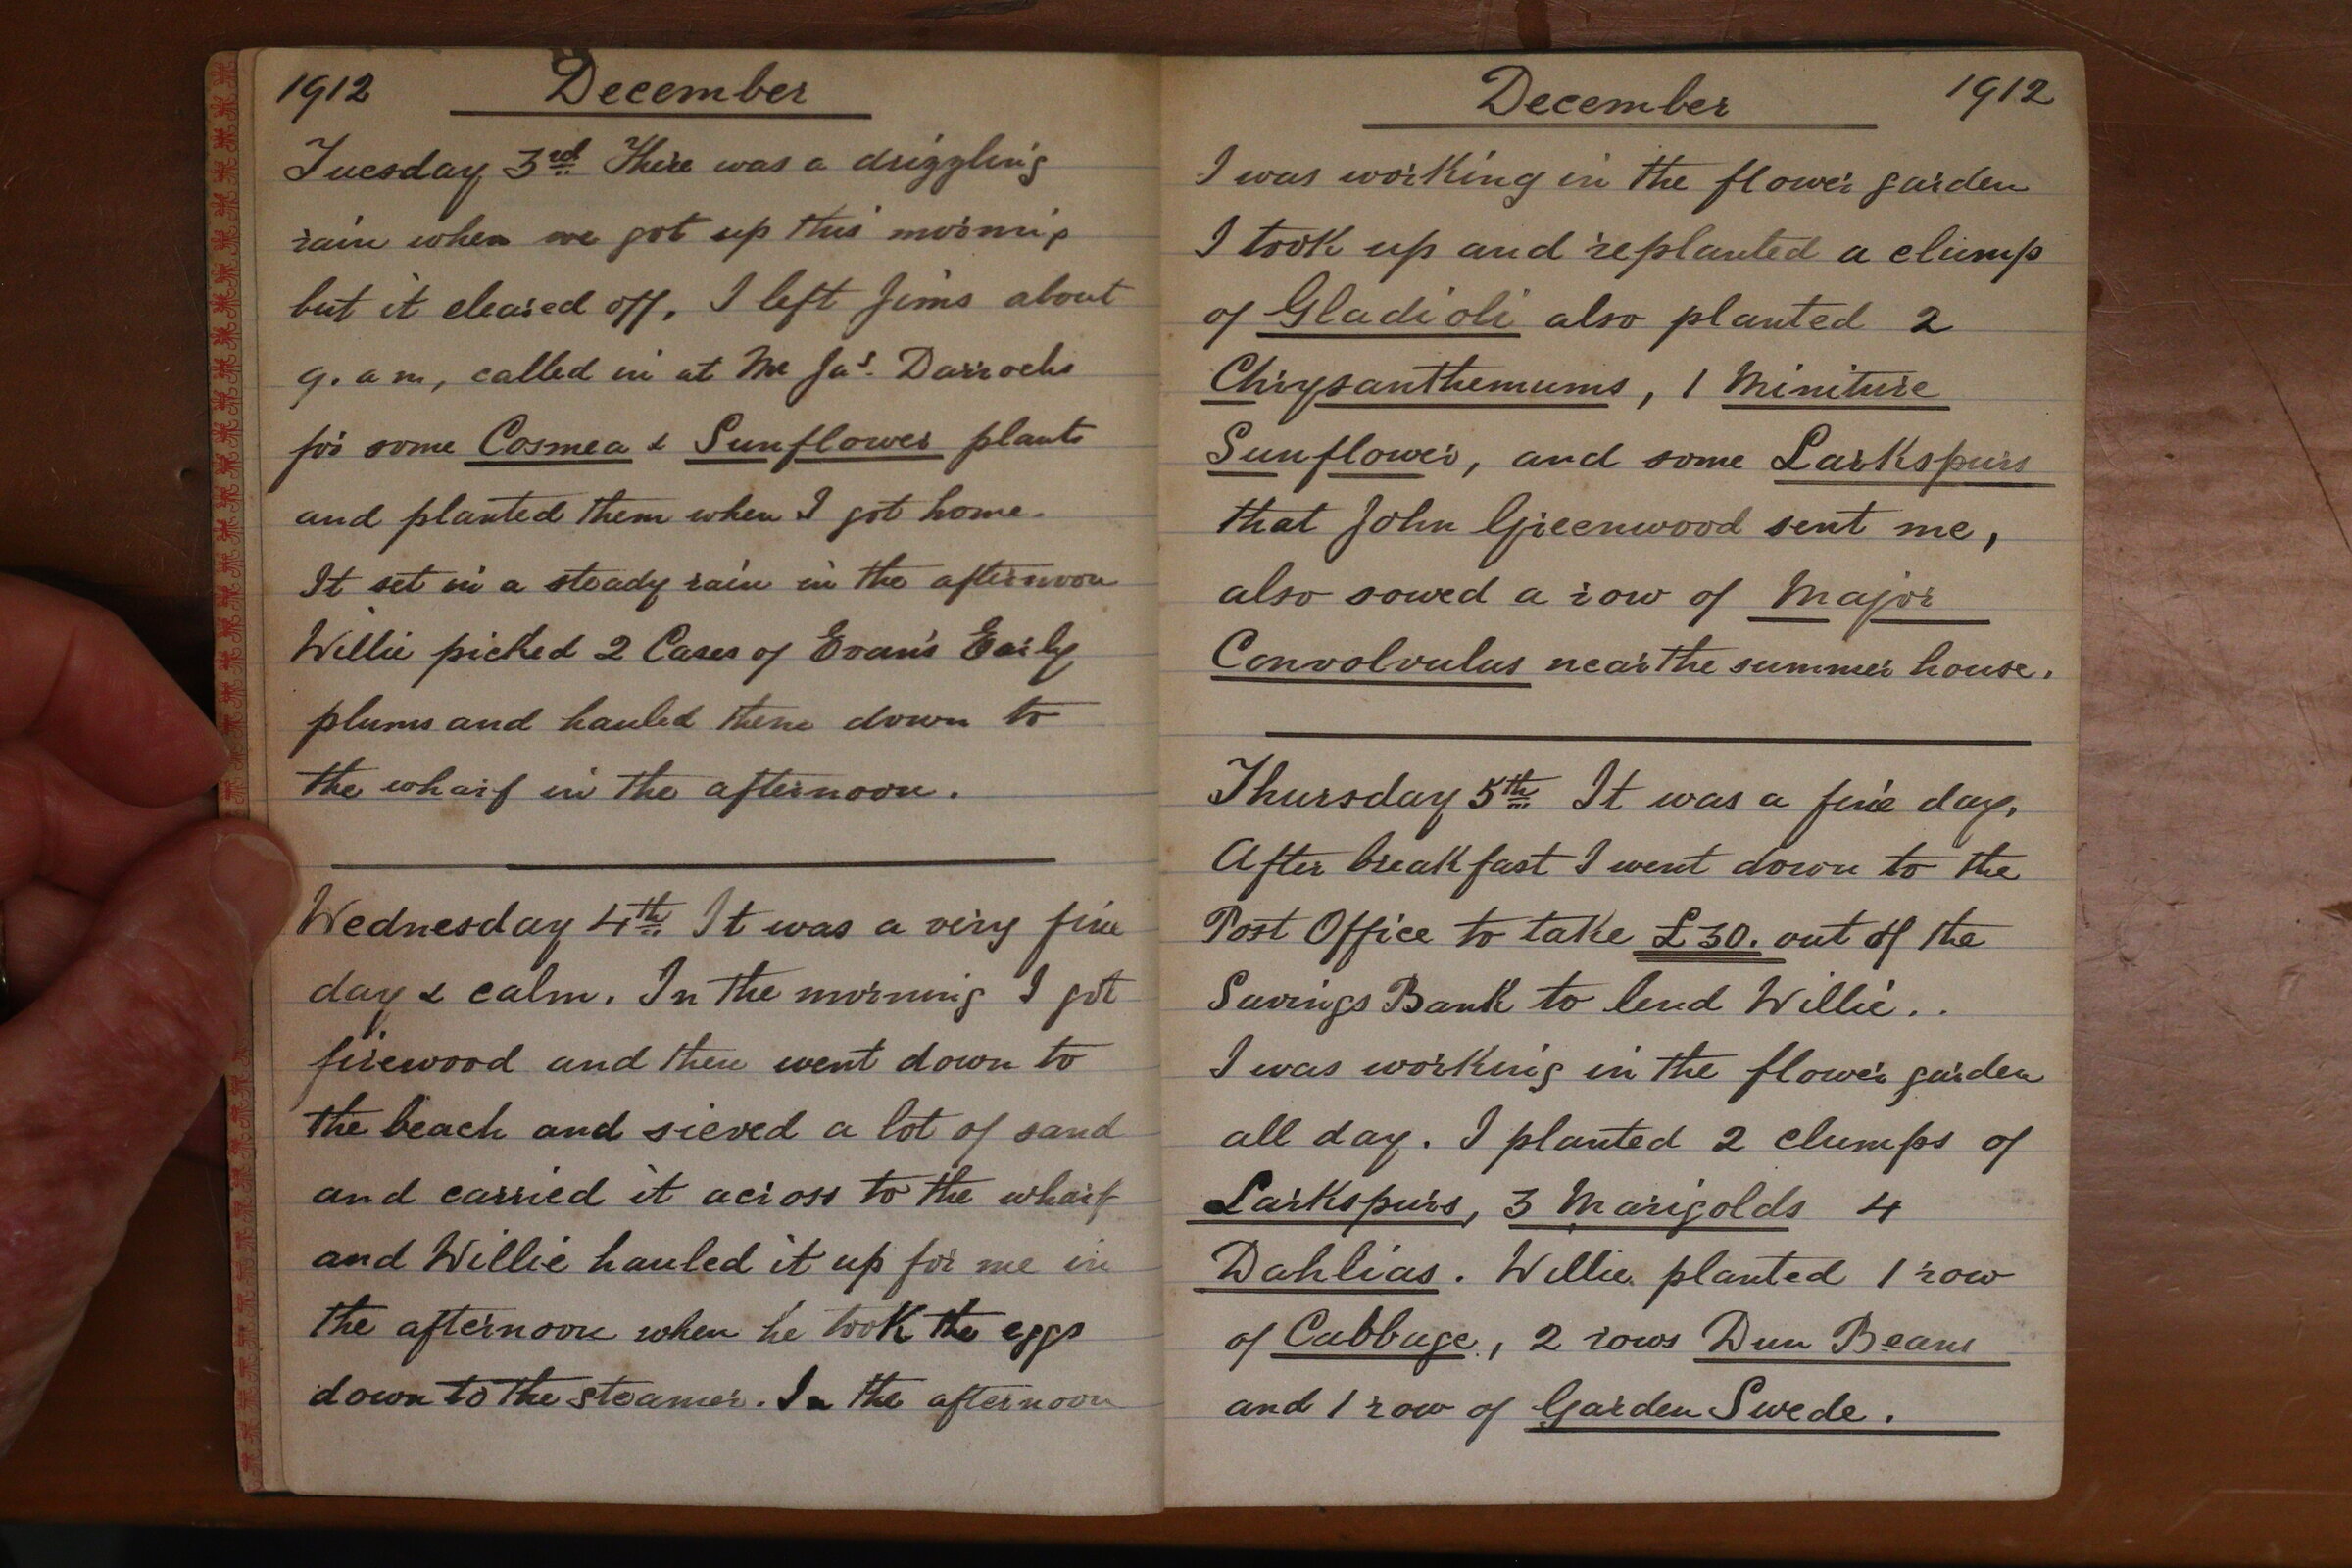 1912 December
Tuesday 3rd There was a drizzling
rain when we got up this morning
but it cleared off. I left Jims about
9. a m, called in at Mr Jas. Darrochs
for some Cosmea & Sunflower plants
and planted them when I got home.
It set in a steady rain in the afternoon
Willie picked 2 Cases of Evan's Early
plums and hauled them down to
the wharf in the afternoon.
Wednesday 4th It was a very fine
day & calm. In the morning I got
firewood and then went down to
the beach and sieved a lot of sand
and carried it across to the wharf
and Willie hauled it up for me in
the afternoon when he took the eggs
down to the steamer. In the afternoon
December 1912
I was working in the flower garden
I took up and replanted a clump
of Gladioli also planted 2
Chrysanthemums, 1 Miniture
Sunflower, and some Larkspurs
that John Greenwood sent me,
also sowed a row of Major
Convolvulus near the summer house.
Thursday 5th It was a fine day.
After breakfast I went down to the
Post Office to take £30. out of the
Savings Bank to lend Willie..
I was working in the flower garden
all day. I planted 2 clumps of
Larkspurs, 3 Marigolds 4
Dahlias. Willie planted 1 row
of Cabbage, 2 rows Dun Beans
and 1 row of Garden Swede.